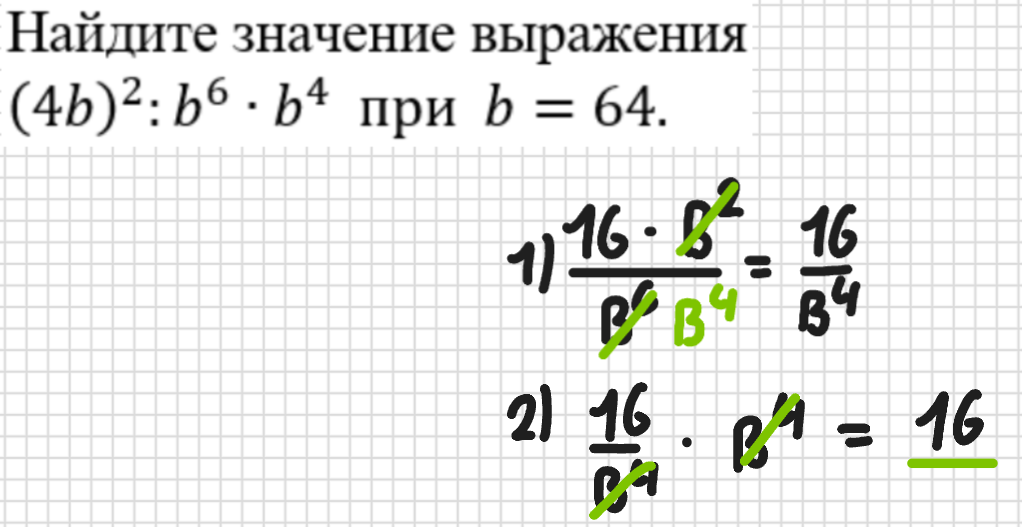 Найдите значение выражения
(4b)²: b⁶ · b⁴ при b = 64.
1) 16 · в² / в⁶ в⁴ = 16 / в⁴
2) 16 / в⁴ · в⁴ = 16